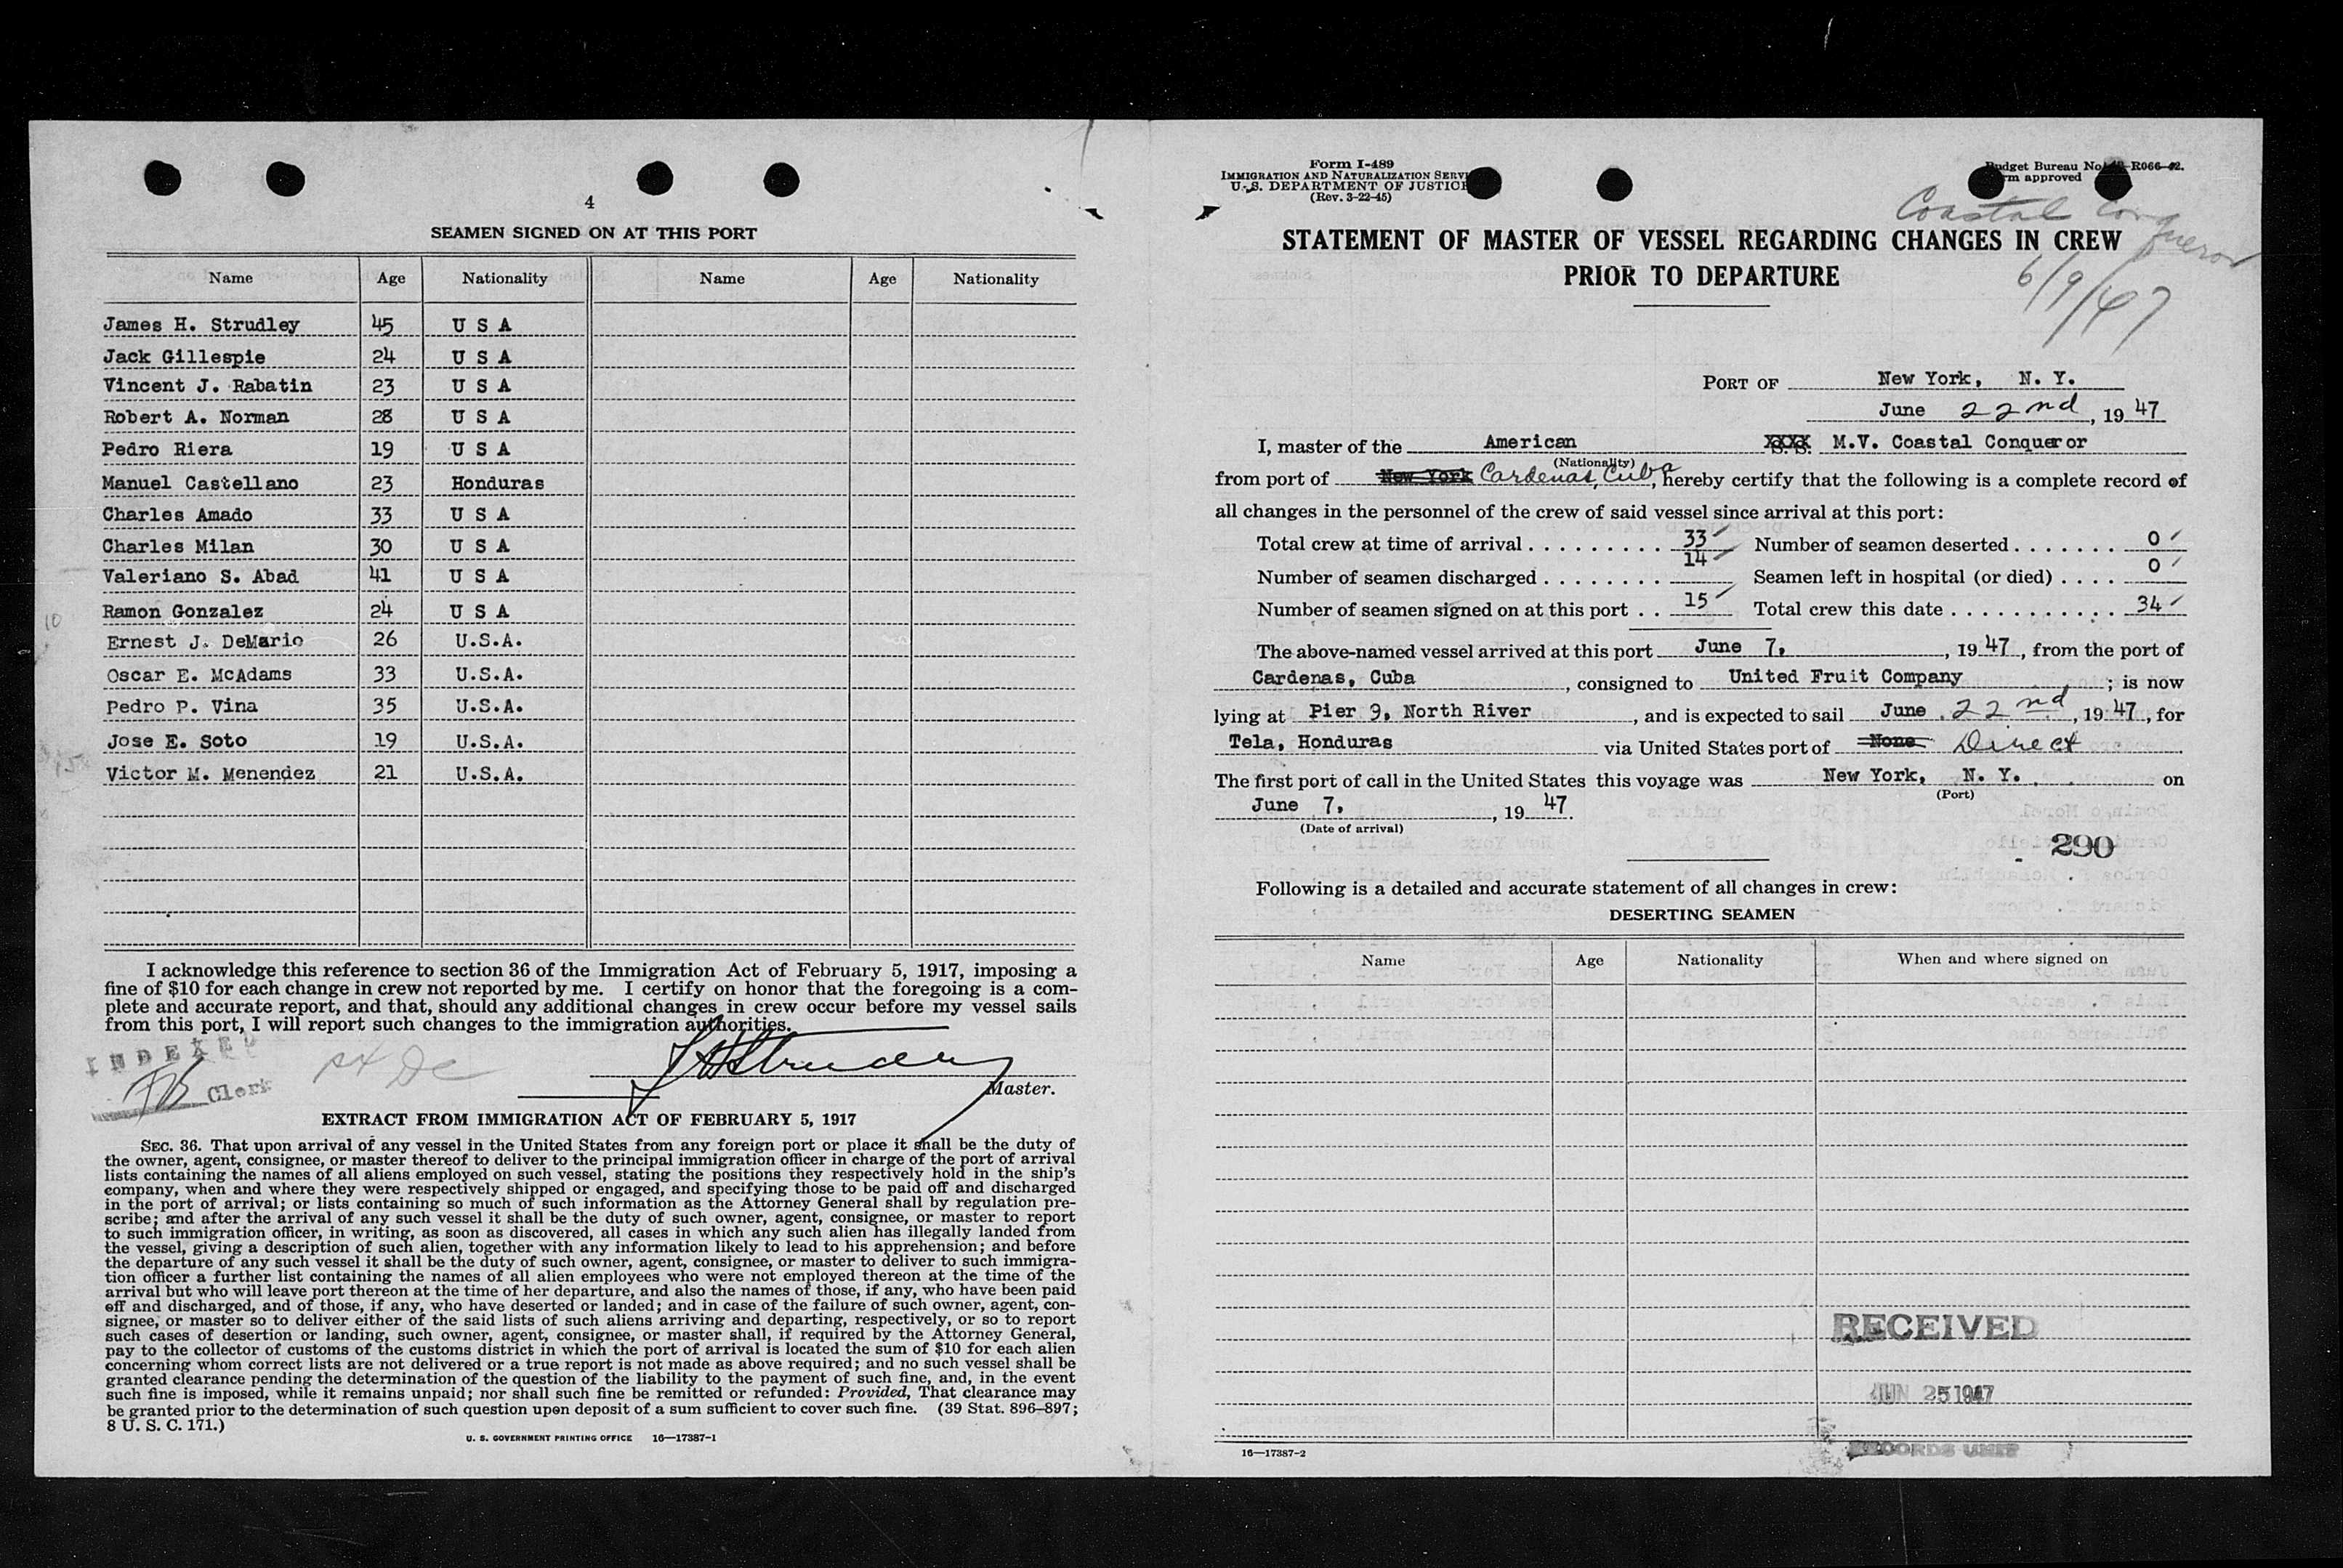 4
SEAMEN SIGNED ON AT THIS PORT
Name Age Nationality Name Age Nationality
James H. Strudley 45 U S A
Jack Gillespie 24 U S A
Vincent J. Rabatin 23 U S A
Robert A. Norman 28 U S A
Pedro Riera 19 U S A
Manuel Castellano 23 Honduras
Charles Amado 33 U S A
Charles Milan 30 U S A
Valeriano S. Abad 41 U S A
Ramon Gonzalez 24 U S A
10
Ernest J. DeMario 26 U.S.A.
Oscar E. McAdams 33 U.S.A.
Pedro P. Vina 35 U.S.A.
Jose E. Soto 19 U.S.A.
15
Victor M. Menendez 21 U.S.A.
I acknowledge this reference to section 36 of the Immigration Act of February 5, 1917, imposing a
fine of $10 for each change in crew not reported by me. I certify on honor that the foregoing is a com-
plete and accurate report, and that, should any additional changes in crew occur before my vessel sails
from this port, I will report such changes to the immigration authorities.
INDEXED
Clerk
Master.
EXTRACT FROM IMMIGRATION ACT OF FEBRUARY 5, 1917
SEC. 36. That upon arrival of any vessel in the United States from any foreign port or place it shall be the duty of
the owner, agent, consignee, or master thereof to deliver to the principal immigration officer in charge of the port of arrival
lists containing the names of all aliens employed on such vessel, stating the positions they respectively hold in the ship's
company, when and where they were respectively shipped or engaged, and specifying those to be paid off and discharged
in the port of arrival; or lists containing so much of such information as the Attorney General shall by regulation pre-
scribe; and after the arrival of any such vessel it shall be the duty of such owner, agent, consignee, or master to report
to such immigration officer, in writing, as soon as discovered, all cases in which any such alien has illegally landed from
the vessel, giving a description of such alien, together with any information likely to lead to his apprehension; and before
the departure of any such vessel it shall be the duty of such owner, agent, consignee, or master to deliver to such immigra-
tion officer a further list containing the names of all alien employees who were not employed thereon at the time of the
arrival but who will leave port thereon at the time of her departure, and also the names of those, if any, who have been paid
off and discharged, and of those, if any, who have deserted or landed; and in case of the failure of such owner, agent, con-
signee, or master so to deliver either of the said lists of such aliens arriving and departing, respectively, or so to report
such cases of desertion or landing, such owner, agent, consignee, or master shall, if required by the Attorney General,
pay to the collector of customs of the customs district in which the port of arrival is located the sum of $10 for each alien
concerning whom correct lists are not delivered or a true report is not made as above required; and no such vessel shall be
granted clearance pending the determination of the question of the liability to the payment of such fine, and, in the event
such fine is imposed, while it remains unpaid; nor shall such fine be remitted or refunded: Provided, That clearance may
be granted prior to the determination of such question upon deposit of a sum sufficient to cover such fine. (39 Stat. 896–897;
8 U. S. C. 171.)
U. S. GOVERNMENT PRINTING OFFICE 16—17387-1
Form I-489
IMMIGRATION AND NATURALIZATION SERVI
U. S. DEPARTMENT OF JUSTICE
(Rev. 3-22-45)
Budget Bureau No. R066-42.
rm approved
Coastal Conqueror
6/9/47
STATEMENT OF MASTER OF VESSEL REGARDING CHANGES IN CREW
PRIOR TO DEPARTURE
PORT OF New York, N. Y.
June 22nd, 19 47
I, master of the American XXXX S. S. M.V. Coastal Conqueror
(Nationality)
from port of New York Cardenas, Cuba, hereby certify that the following is a complete record of
all changes in the personnel of the crew of said vessel since arrival at this port:
Total crew at time of arrival . . . . . . . . . . 33 Number of seamen deserted . . . . . . . 0
Number of seamen discharged . . . . . . . . 14 Seamen left in hospital (or died) . . . . 0
Number of seamen signed on at this port . . 15 Total crew this date . . . . . . . . . . . . 34
The above-named vessel arrived at this port June 7, , 19 47, from the port of
Cardenas, Cuba , consigned to United Fruit Company ; is now
lying at Pier 9, North River , and is expected to sail June 22nd, 19 47, for
Tela, Honduras via United States port of None Direct
The first port of call in the United States this voyage was New York, N. Y. on
(Port)
June 7, , 19 47.
(Date of arrival)
290
Following is a detailed and accurate statement of all changes in crew:
DESERTING SEAMEN
Name Age Nationality When and where signed on
RECEIVED
JUN 25 1947
RECORDS UNIT
16—17387-2